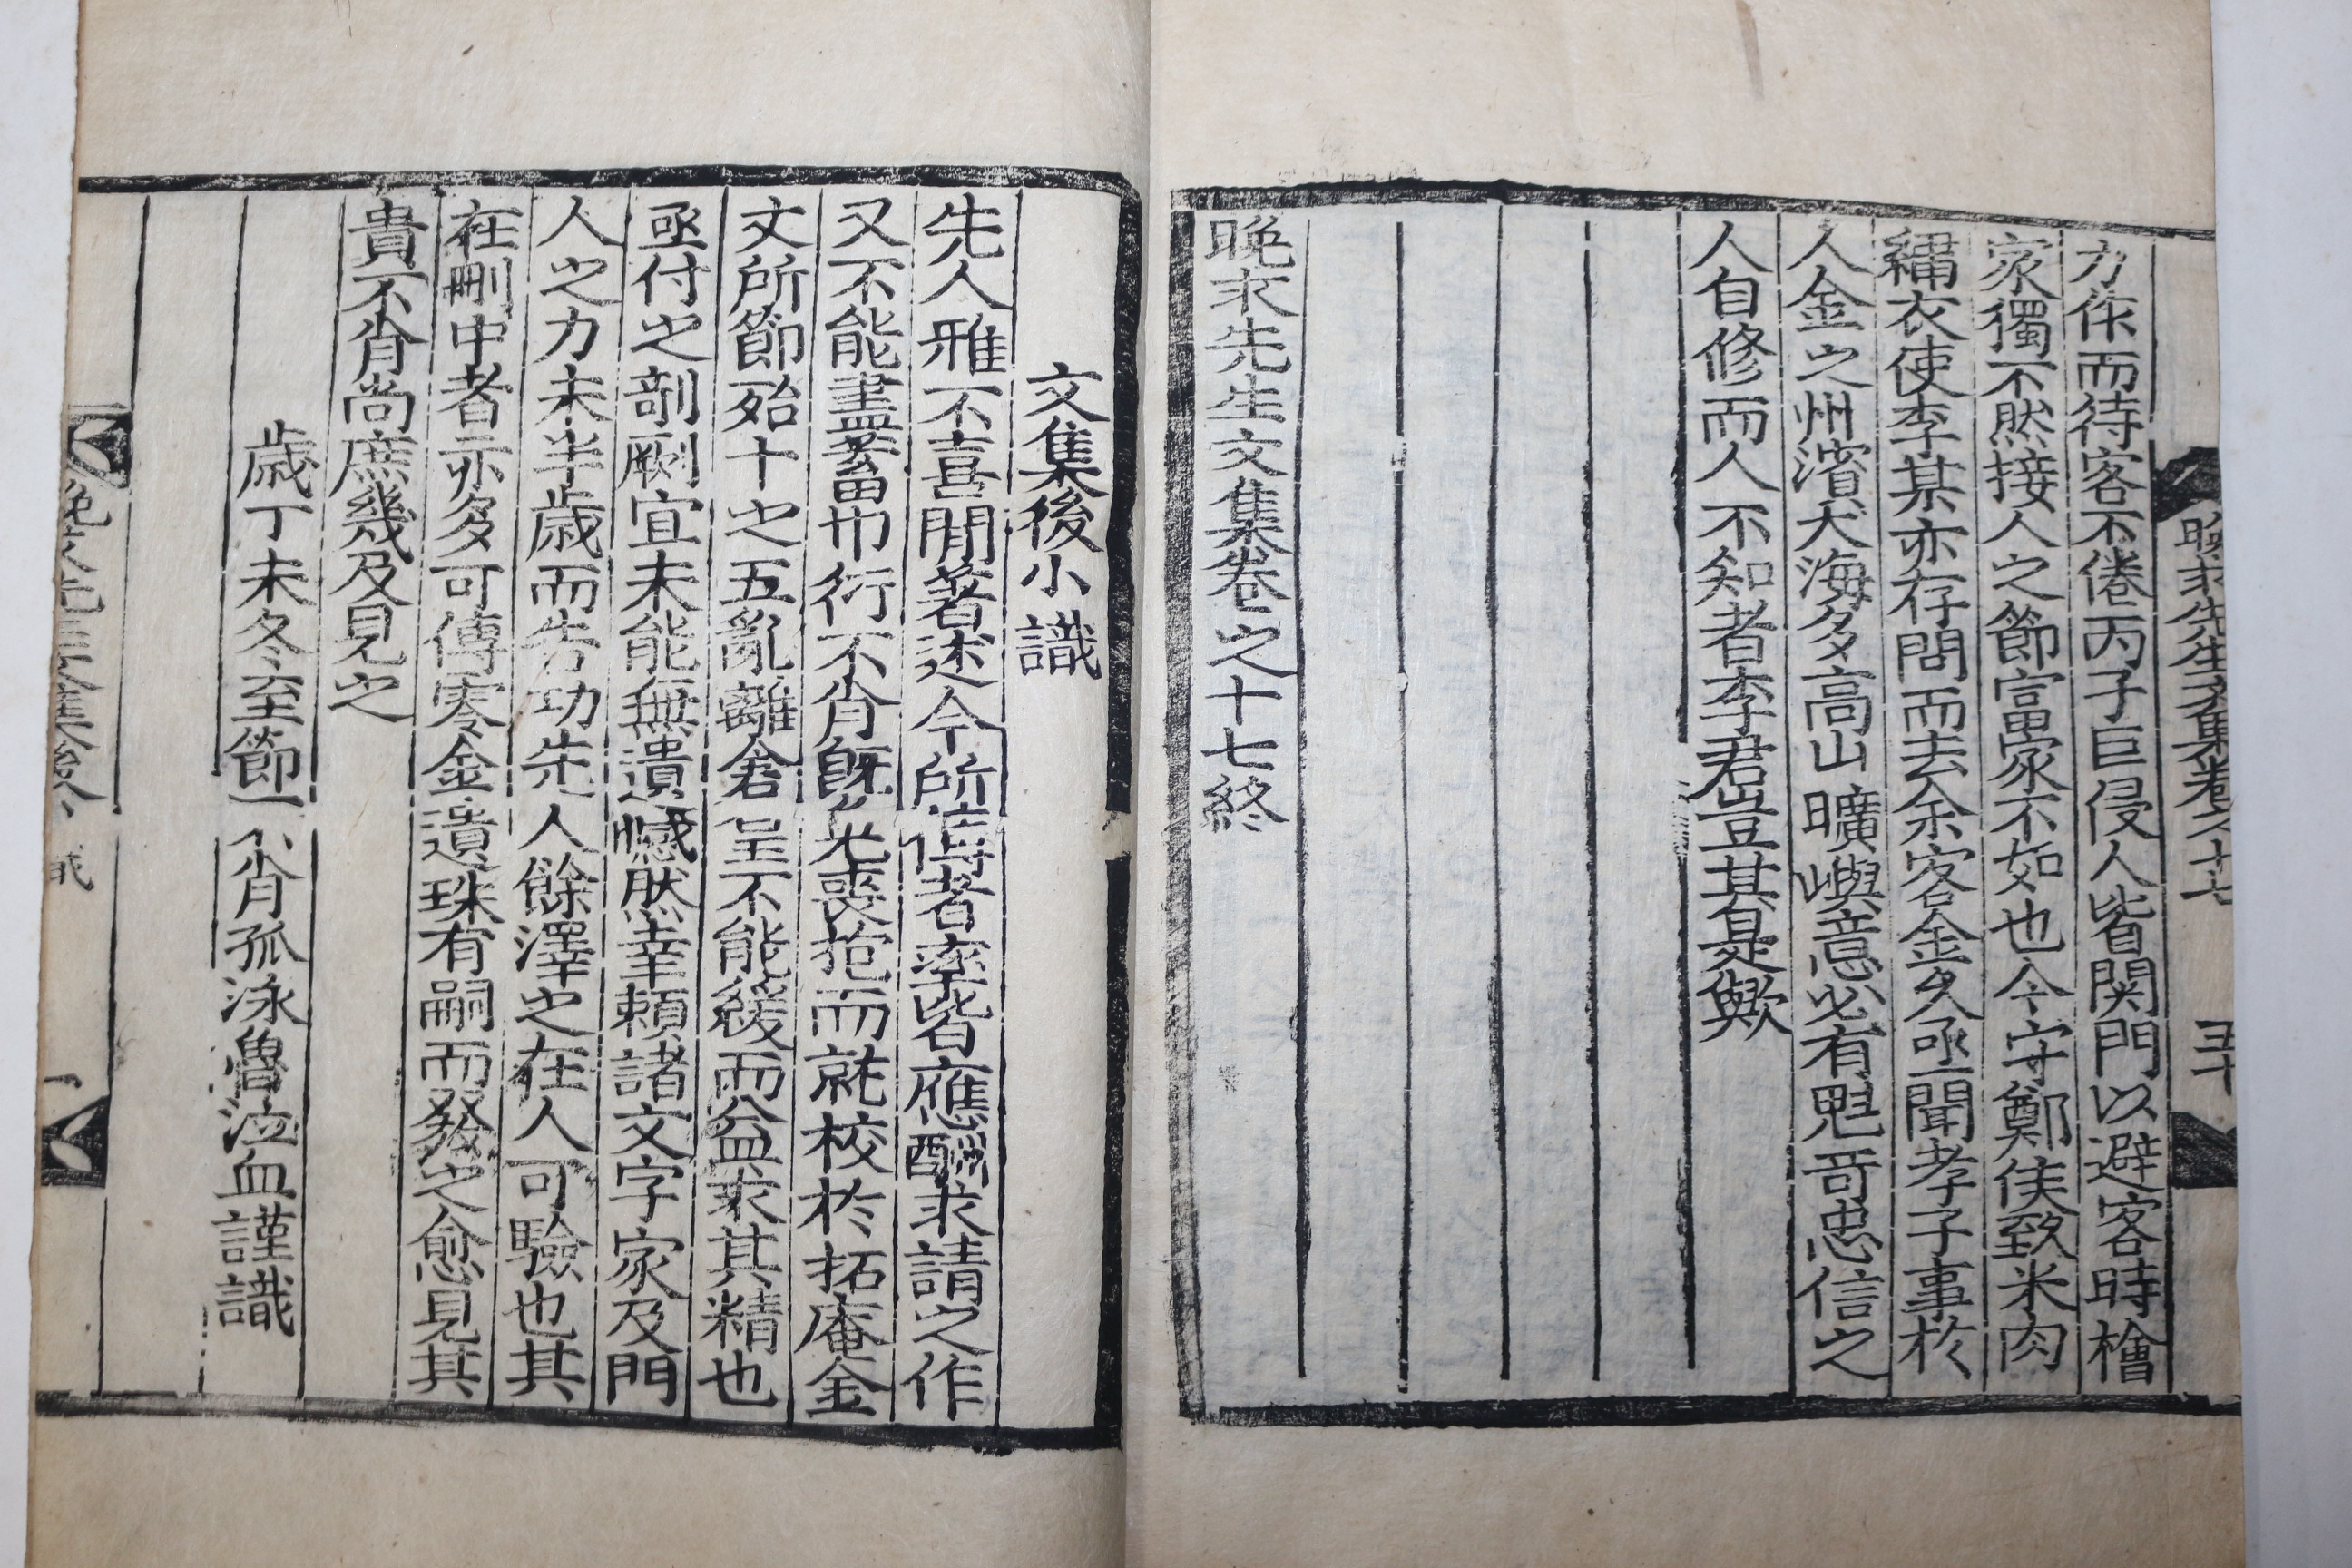 晩求先生文集卷之十七
五十
力作而待客不倦丙子巨侵人皆関門以避客時檜
家獨不然接人之節富家不如也今守鄭侯致米肉
繡衣使李某亦存問而去余客金久亟聞孝子事於
人金之州濱大海多高山曠嶼意必有魁奇忠信之
人自修而人不知者李君豈其是歟
晩求先生文集卷之十七終
文集後小識
先人雅不喜閒著述今所存者率皆應酬求請之作
又不能盡蓄巾衍不肖旣免喪抱而就校於拓庵金
文所節殆十之五亂離倉皇不能緩而益求其精也
亟付之剞劂宜未能無遺憾然幸賴諸文字家及門
人之力未半歲而告功先人餘澤之在人可驗也其
在刪中者亦多可傳零金遺珠有嗣而發之愈見其
貴不肖尚庶幾及見之
歲丁未冬至節不肖孤泳魯泣血謹識